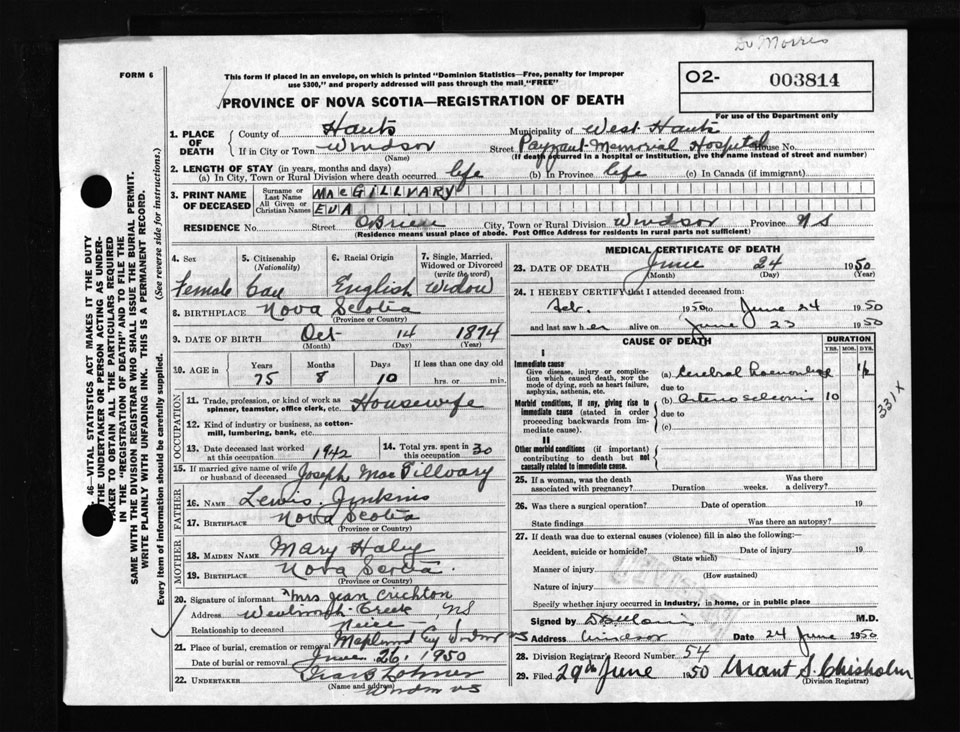 Dr Morris
FORM 6
This form if placed in an envelope, on which is printed "Dominion Statistics—Free, penalty for improper
use $300," and properly addressed will pass through the mail "FREE"
PROVINCE OF NOVA SCOTIA—REGISTRATION OF DEATH
O2- 003814
For use of the Department only
46 — VITAL STATISTICS ACT MAKES IT THE DUTY
THE UNDERTAKER OR PERSON ACTING AS UNDER-
TAKER TO OBTAIN ALL THE PARTICULARS REQUIRED
IN THE "REGISTRATION OF DEATH" AND TO FILE THE
SAME WITH THE DIVISION REGISTRAR WHO SHALL ISSUE THE BURIAL PERMIT.
WRITE PLAINLY WITH UNFADING INK. THIS IS A PERMANENT RECORD.
Every item of information should be carefully supplied. (See reverse side for instructions.)
1. PLACE OF DEATH County of Hants Municipality of West Hants
If in City or Town Windsor Street Payzant Memorial Hospital House No.
(Name) (If death occurred in a hospital or institution, give the name instead of street and number)
2. LENGTH OF STAY (in years, months and days)
(a) In City, Town or Rural Division where death occurred life (b) In Province life (c) In Canada (if immigrant)
3. PRINT NAME OF DECEASED Surname or Last Name MACGILLVARY
All Given or Christian Names EVA
RESIDENCE No. Street O'Brien City, Town or Rural Division Windsor Province NS
(Residence means usual place of abode. Post Office Address for residents in rural parts not sufficient)
4. Sex 5. Citizenship (Nationality) 6. Racial Origin 7. Single, Married, Widowed or Divorced (write the word)
Female Can English Widow
8. BIRTHPLACE Nova Scotia
(Province or Country)
9. DATE OF BIRTH Oct 14 1874
(Month) (Day) (Year)
10. AGE in Years Months Days If less than one day old
75 8 10 hrs. or min.
OCCUPATION
11. Trade, profession, or kind of work as spinner, teamster, office clerk, etc. Housewife
12. Kind of industry or business, as cotton-mill, lumbering, bank, etc.
13. Date deceased last worked at this occupation 1942 14. Total yrs. spent in this occupation 30
15. If married give name of wife or husband of deceased Joseph MacGillvary
FATHER
16. NAME Lewis Jenkins
17. BIRTHPLACE Nova Scotia
(Province or Country)
MOTHER
18. MAIDEN NAME Mary Haley
19. BIRTHPLACE Nova Scotia.
(Province or Country)
20. Signature of informant Mrs Jean Crichton
Address Wentworth Creek NS
Relationship to deceased Neice
21. Place of burial, cremation or removal Maplewood Cem Windsor NS
Date of burial or removal June 26, 1950
22. UNDERTAKER
(Name and address) Windsor NS
MEDICAL CERTIFICATE OF DEATH
23. DATE OF DEATH June 24 1950
(Month) (Day) (Year)
24. I HEREBY CERTIFY that I attended deceased from:
Feb. 1950 to June 24 1950
and last saw her alive on June 23 1950
CAUSE OF DEATH DURATION
YRS. MOS. DYS.
I
Immediate cause
Give disease, injury or complication which caused death, nor the mode of dying, such as heart failure, asphyxia, asthenia, etc.
(a) Cerebral Haemorrhage 1/2
due to
Morbid conditions, if any, giving rise to immediate cause (stated in order proceeding backwards from immediate cause).
(b) Arteriosclerosis 10
due to
(c)
331X
II
Other morbid conditions (if important) contributing to death but not causally related to immediate cause.
25. If a woman, was the death associated with pregnancy? Duration weeks. Was there a delivery?
26. Was there a surgical operation? Date of operation 19
State findings Was there an autopsy?
27. If death was due to external causes (violence) fill in also the following:
Accident, suicide or homicide? Date of injury 19
(State which)
Manner of injury
(How sustained)
Nature of injury
Specify whether injury occurred in industry, in home, or in public place
Signed by M.D.
Address Windsor Date 24 June 1950
28. Division Registrar's Record Number 54
29. Filed 29th June 1950 Grant S. Chisholm
(Division Registrar)